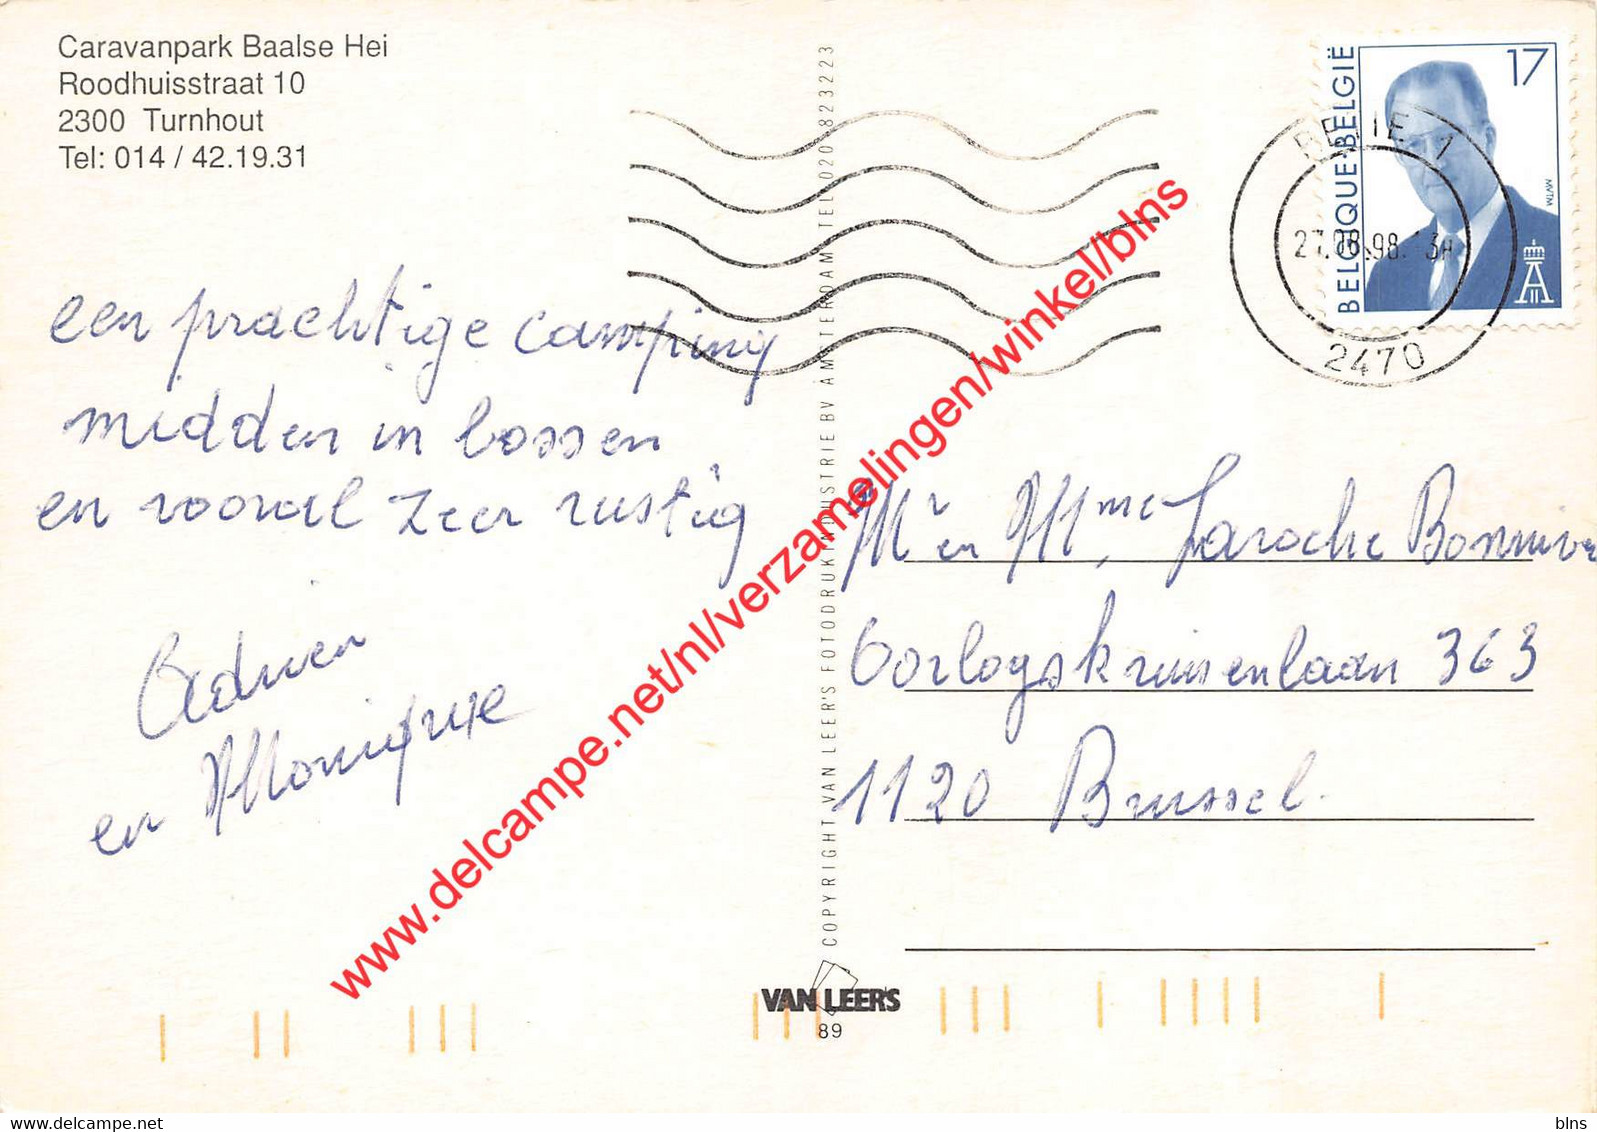 Caravanpark Baalse Hei
Roodhuisstraat 10
2300 Turnhout
Tel: 014 / 42.19.31
een prachtige camping
midden in bossen
en vooral zeer rustig
Adrien
en Monique
COPYRIGHT VAN LEER'S FOTODRUKINDUSTRIE BV AMSTERDAM TEL 020-823223
VAN LEER'S
89
BELGIQUE·BELGIË
17
MVTM
RETIE 1
27.08.98.13H
2470
Mr en Mme Laroche
Oorlogskruisenlaan 363
1120 Brussel.
www.delcampe.net/nl/verzamelingen/winkel/blns
blns